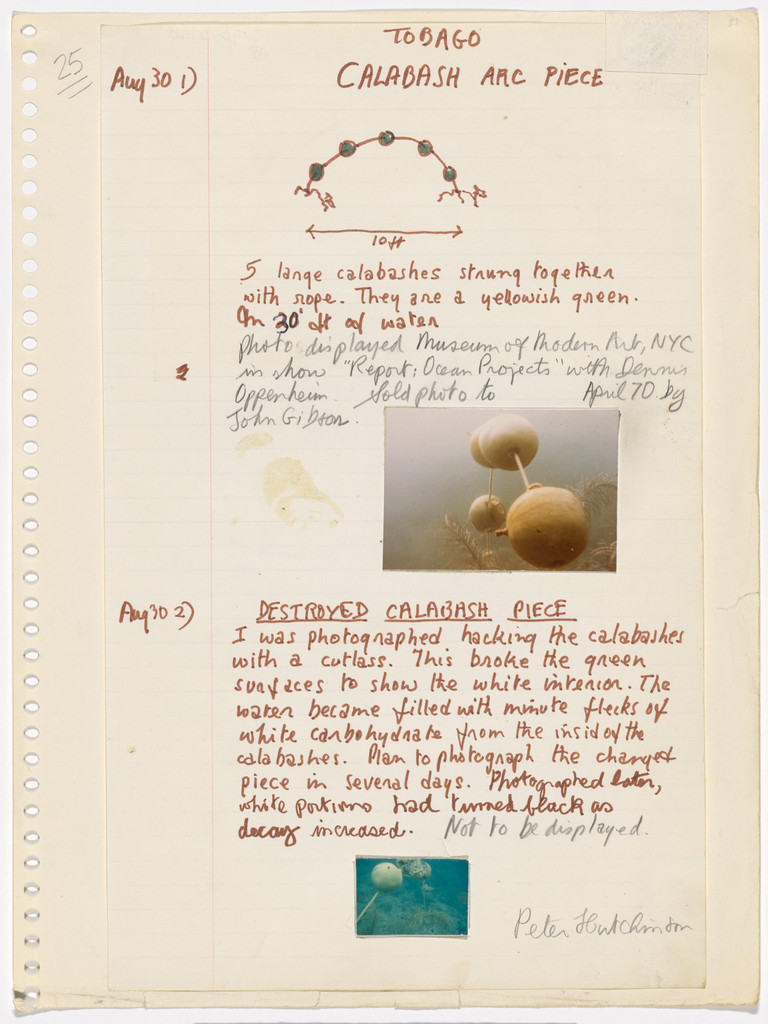 25
TOBAGO
Aug 30 1) CALABASH ARC PIECE
10ft
5 large calabashes strung together
with rope. They are a yellowish green.
In 30' ft of water
photo displayed Museum of Modern Art, NYC
in show "Report: Ocean Projects" with Dennis
Oppenheim. Sold photo to April 70 by
John Gibson.
Aug 30 2) DESTROYED CALABASH PIECE
I was photographed hacking the calabashes
with a cutlass. This broke the green
surfaces to show the white interior. The
water became filled with minute flecks of
white carbohydrate from the insid of the
calabashes. Plan to photograph the changed
piece in several days. Photographed later,
white portions had turned black as
decay increased. Not to be displayed.
Peter Hutchinson